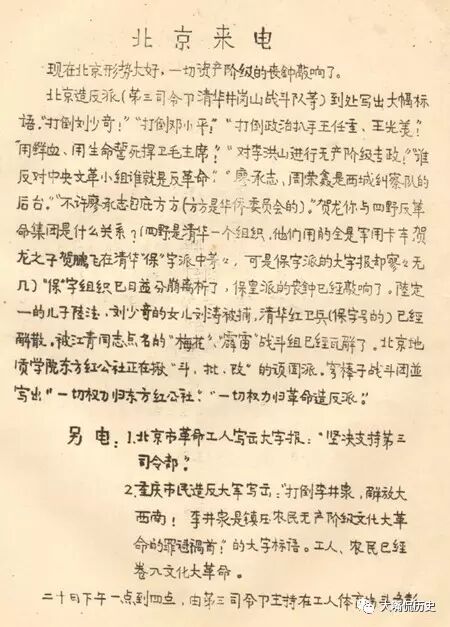 北京来电
现在北京形势大好，一切资产阶级的丧钟敲响了。
北京造反派(第三司令卫清华井岗山战斗队等)到处写出大幅标
语。"打倒刘少奇！""打倒邓小平！""打倒政治扒手王任重、王光美！"
"用鲜血、用生命誓死捍卫毛主席！""对李洪山进行无产阶级专政！""谁
反对中央文革小组谁就是反革命""廖承志、周荣鑫是西城纠察队的
后台。""不许廖承志包庇方方(方方是华侨委员会的)。""贺龙你与四野反革
命集团是什么关系？(四野是清华一个组织，他们用的全是军用卡车，贺
龙之子贺鹏飞在清华"保"字派中等々，可是保字派的大字报却寥々无
几)"保"字组织已日益分崩离析了，保皇派的丧钟已经敲响了。陆定
一的儿子陆法，刘少奇的女儿刘涛被捕，清华红卫兵(保字号的)已经
解散。被江青同志点名的"梅花"、"霹雷"战斗组已经瓦解了。北京地
质学院东方红公社正在揪"斗、批、改"的顽固派。
写出"一切权力归东方红公社"。"一切权力归革命造反派。"
另电：1.北京市革命工人写出大字报："坚决支持第三
司令部。"
2.重庆市民造反大军写出："打倒李井泉，解放大
西南！李井泉是镇压农民无产阶级文化大革
命的罪魁祸首！"的大字标语。工人、农民已经
卷入文化大革命。
二十日下午一点到四点，由第三司令卫主持在工人体育
大嘴侃历史